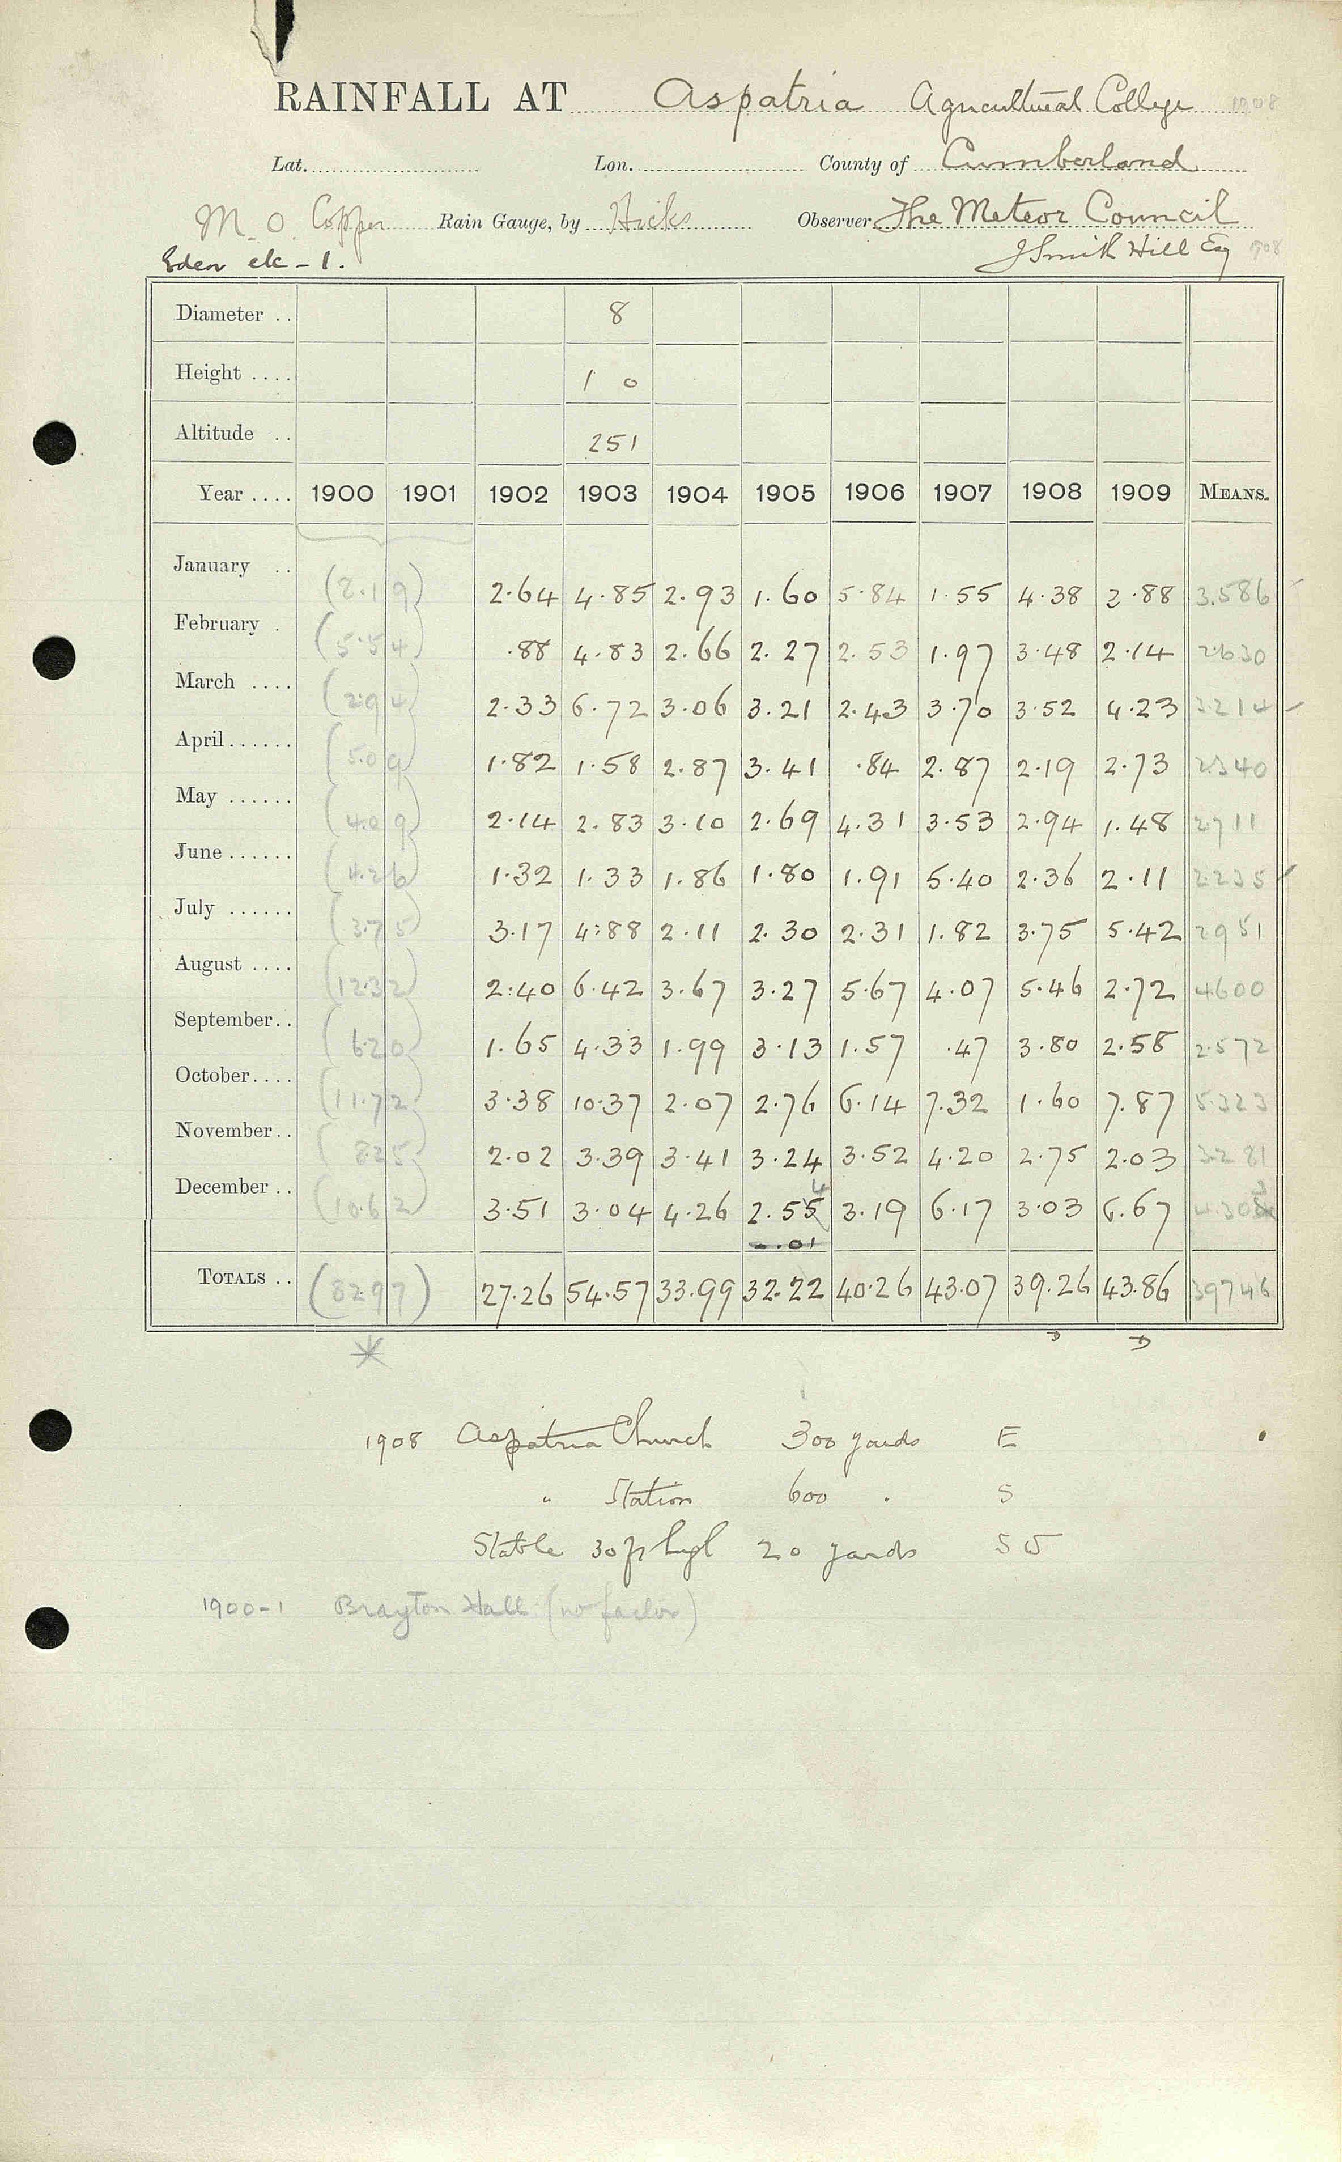 RAINFALL AT Aspatria Agricultural College 1908
Lat. Lon. County of Cumberland
M. O. Copper Rain Gauge, by Hicks Observer The Meteor Council
Eden etc - 1. J Smith Hill Esq 1908
Diameter .. 8
Height .... 1 0
Altitude .. 251
Year .... 1900 1901 1902 1903 1904 1905 1906 1907 1908 1909 MEANS.
January .. (2.19) 2.64 4.85 2.93 1.60 5.84 1.55 4.38 2.88 3.586
February . (5.54) .88 4.83 2.66 2.27 2.53 1.97 3.48 2.14 2.630
March .... (2.94) 2.33 6.72 3.06 3.21 2.43 3.70 3.52 4.23 3.214
April...... (5.09) 1.82 1.58 2.87 3.41 .84 2.87 2.19 2.73 2.340
May ...... (4.09) 2.14 2.83 3.10 2.69 4.31 3.53 2.94 1.48 2.711
June...... (4.26) 1.32 1.33 1.86 1.80 1.91 5.40 2.36 2.11 2.235
July ...... (3.75) 3.17 4.88 2.11 2.30 2.31 1.82 3.75 5.42 2.951
August .... (12.32) 2.40 6.42 3.67 3.27 5.67 4.07 5.46 2.72 4.600
September.. (6.20) 1.65 4.33 1.99 3.13 1.57 .47 3.80 2.58 2.572
October.... (11.72) 3.38 10.37 2.07 2.76 6.14 7.32 1.60 7.87 5.323
November.. (8.25) 2.02 3.39 3.41 3.24 3.52 4.20 2.75 2.03 3.281
4 3
December .. (10.62) 3.51 3.04 4.26 2.55 3.19 6.17 3.03 6.67 4.308
2.01
TOTALS .. (82.97) 27.26 54.57 33.99 32.22 40.26 43.07 39.26 43.86 39.746
*
1908 Aspatria Church 300 yards E
" Station 600 . S
Stable 30 ft high 20 yards SW
1900-1 Brayton Hall (no factor)